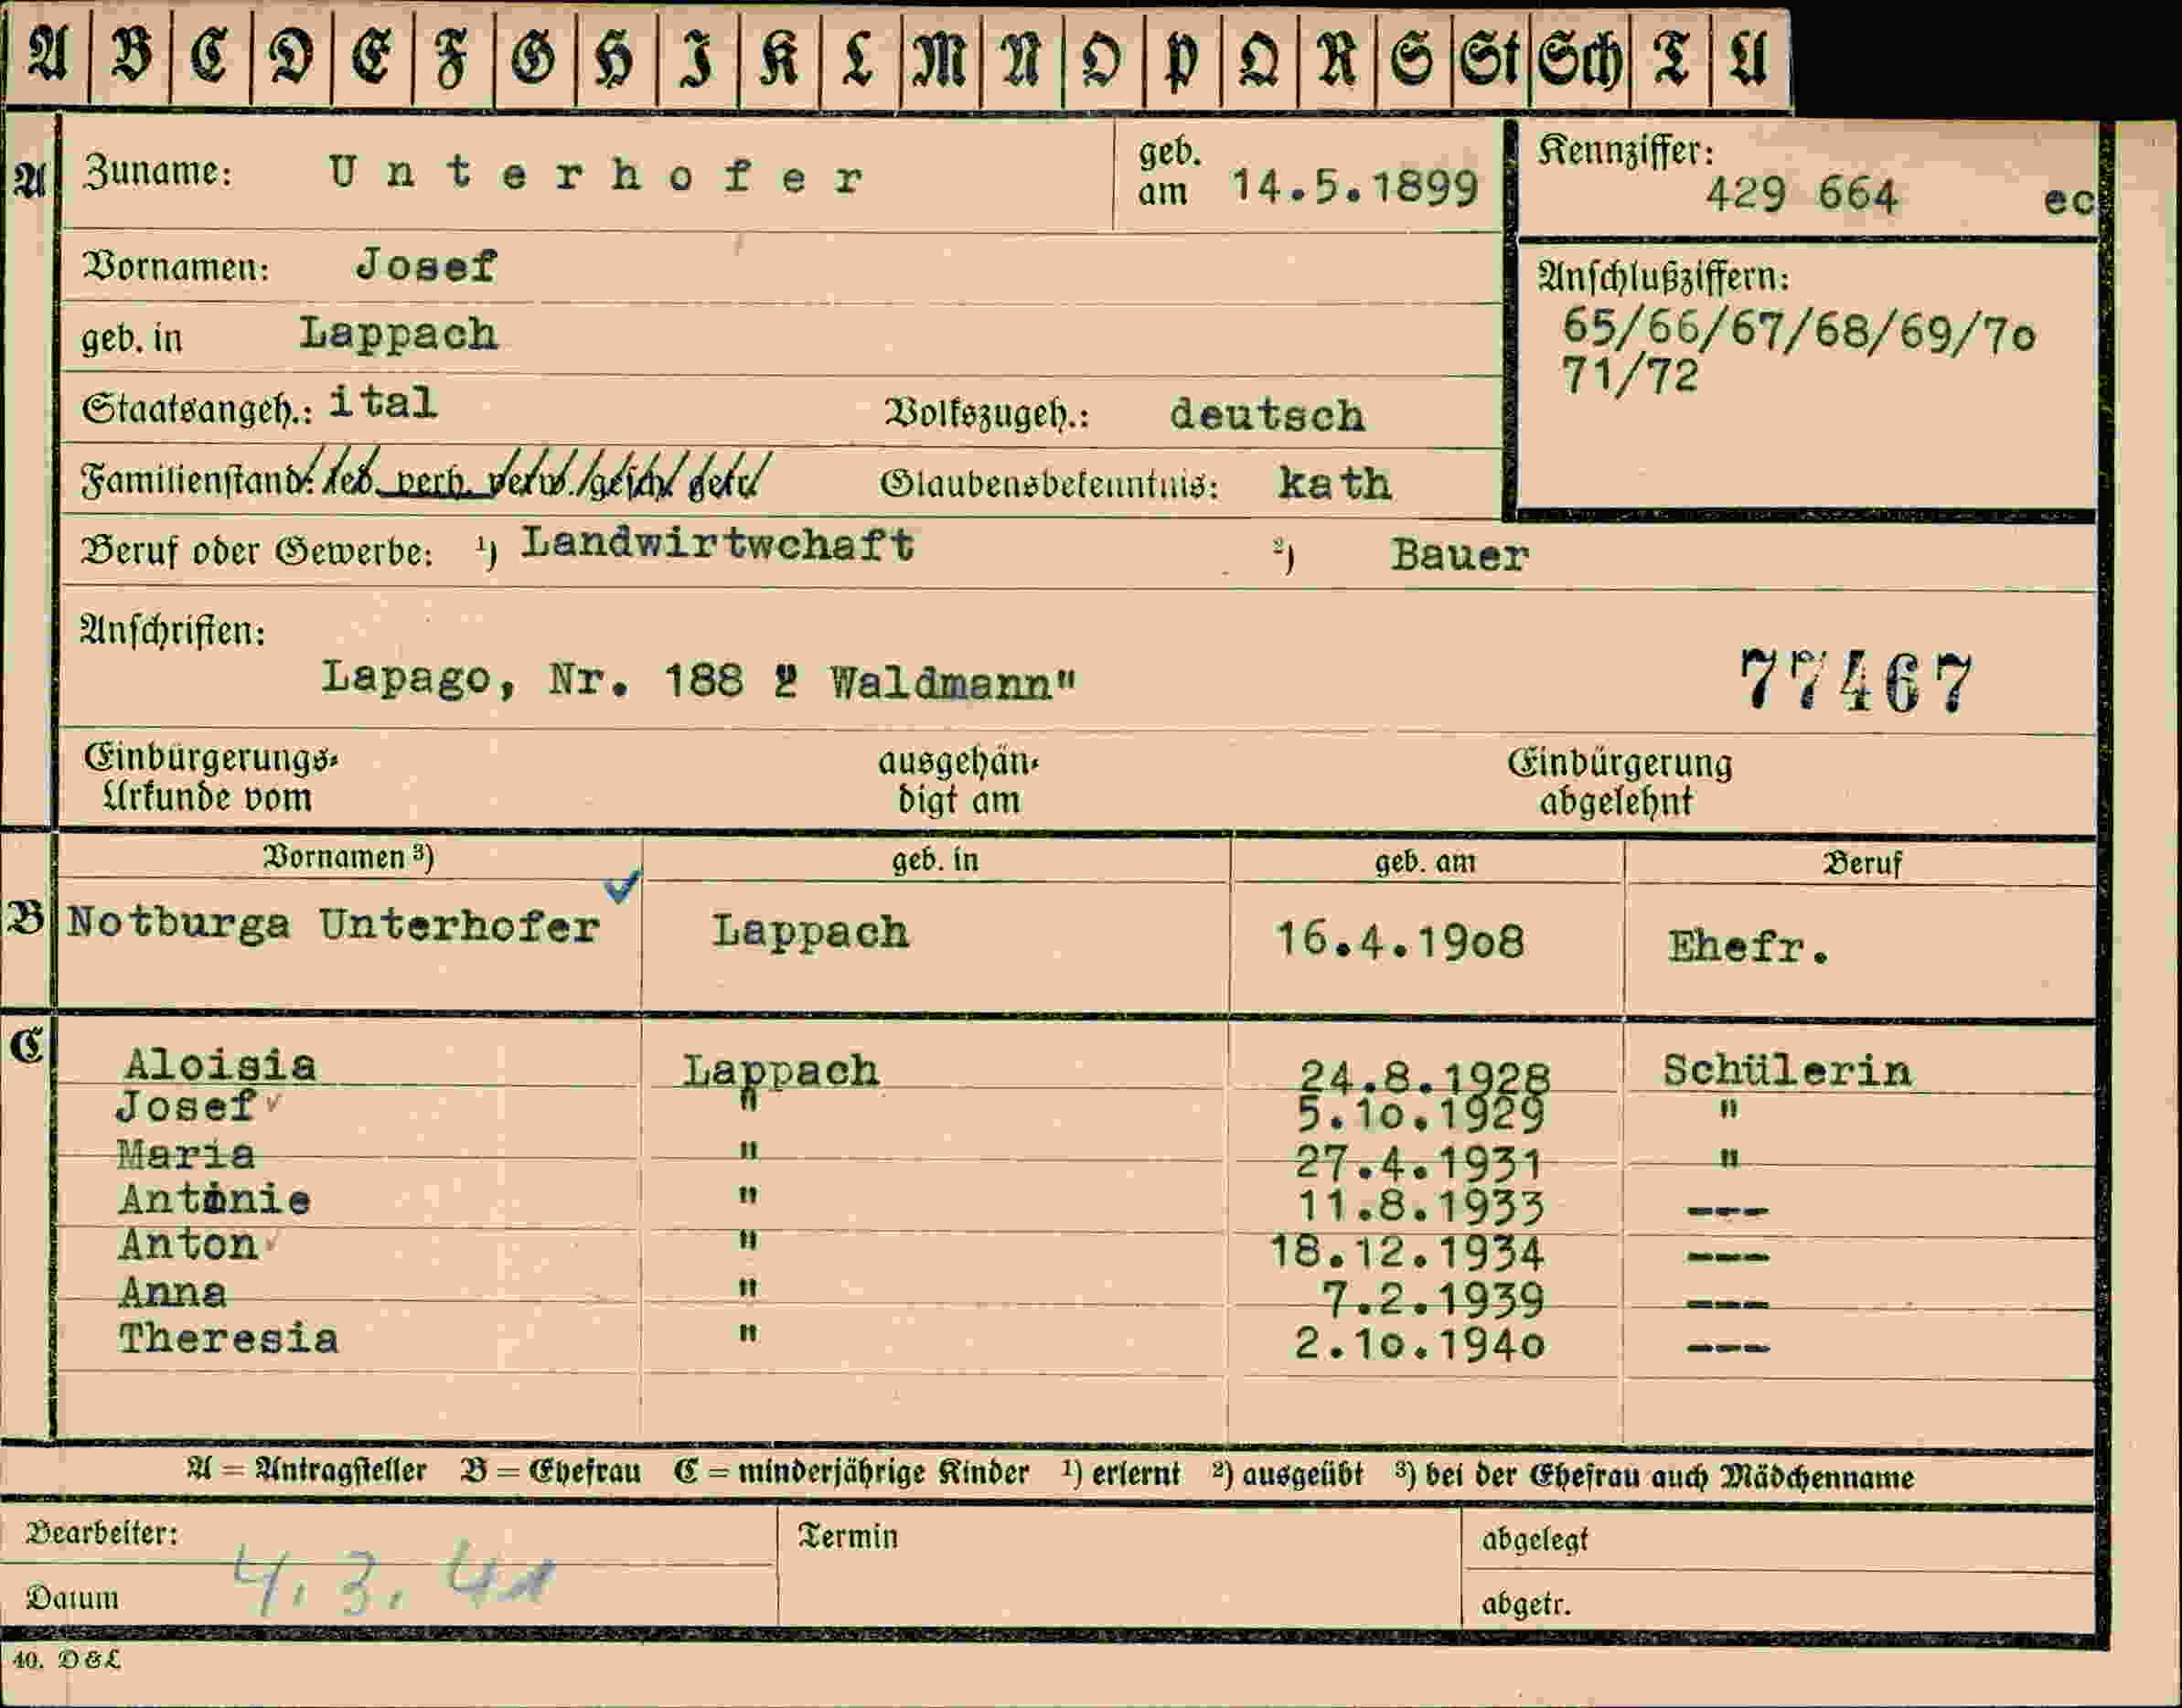 A B C D E F G H I K L M N O P Q R S St Sch T U
A Zuname: Unterhofer geb. am 14.5.1899 Kennziffer: 429 664 ec
Vornamen: Josef
Anschlußziffern:
65/66/67/68/69/7o
71/72
geb. in Lappach
Staatsangeh.: ital Volkszugeh.: deutsch
Familienstand: led. verh. verw. gesch. Glaubensbekenntnis: kath
Beruf oder Gewerbe: ¹) Landwirtwchaft ²) Bauer
Anschriften:
Lapago, Nr. 188 Waldmann"
77467
Einbürgerungs-Urkunde vom ausgehändigt am Einbürgerung abgelehnt
Vornamen ³) geb. in geb. am Beruf
B Notburga Unterhofer Lappach 16.4.19o8 Ehefr.
C Aloisia Lappach 24.8.1928 Schülerin
Josef " 5.1o.1929 "
Maria " 27.4.1931 "
Antonie " 11.8.1933 ---
Anton " 18.12.1934 ---
Anna " 7.2.1939 ---
Theresia " 2.1o.194o ---
A = Antragsteller B = Ehefrau C = minderjährige Kinder ¹) erlernt ²) ausgeübt ³) bei der Ehefrau auch Mädchenname
Bearbeiter: Termin abgelegt
Datum 4.3.41 abgetr.
40. D&L